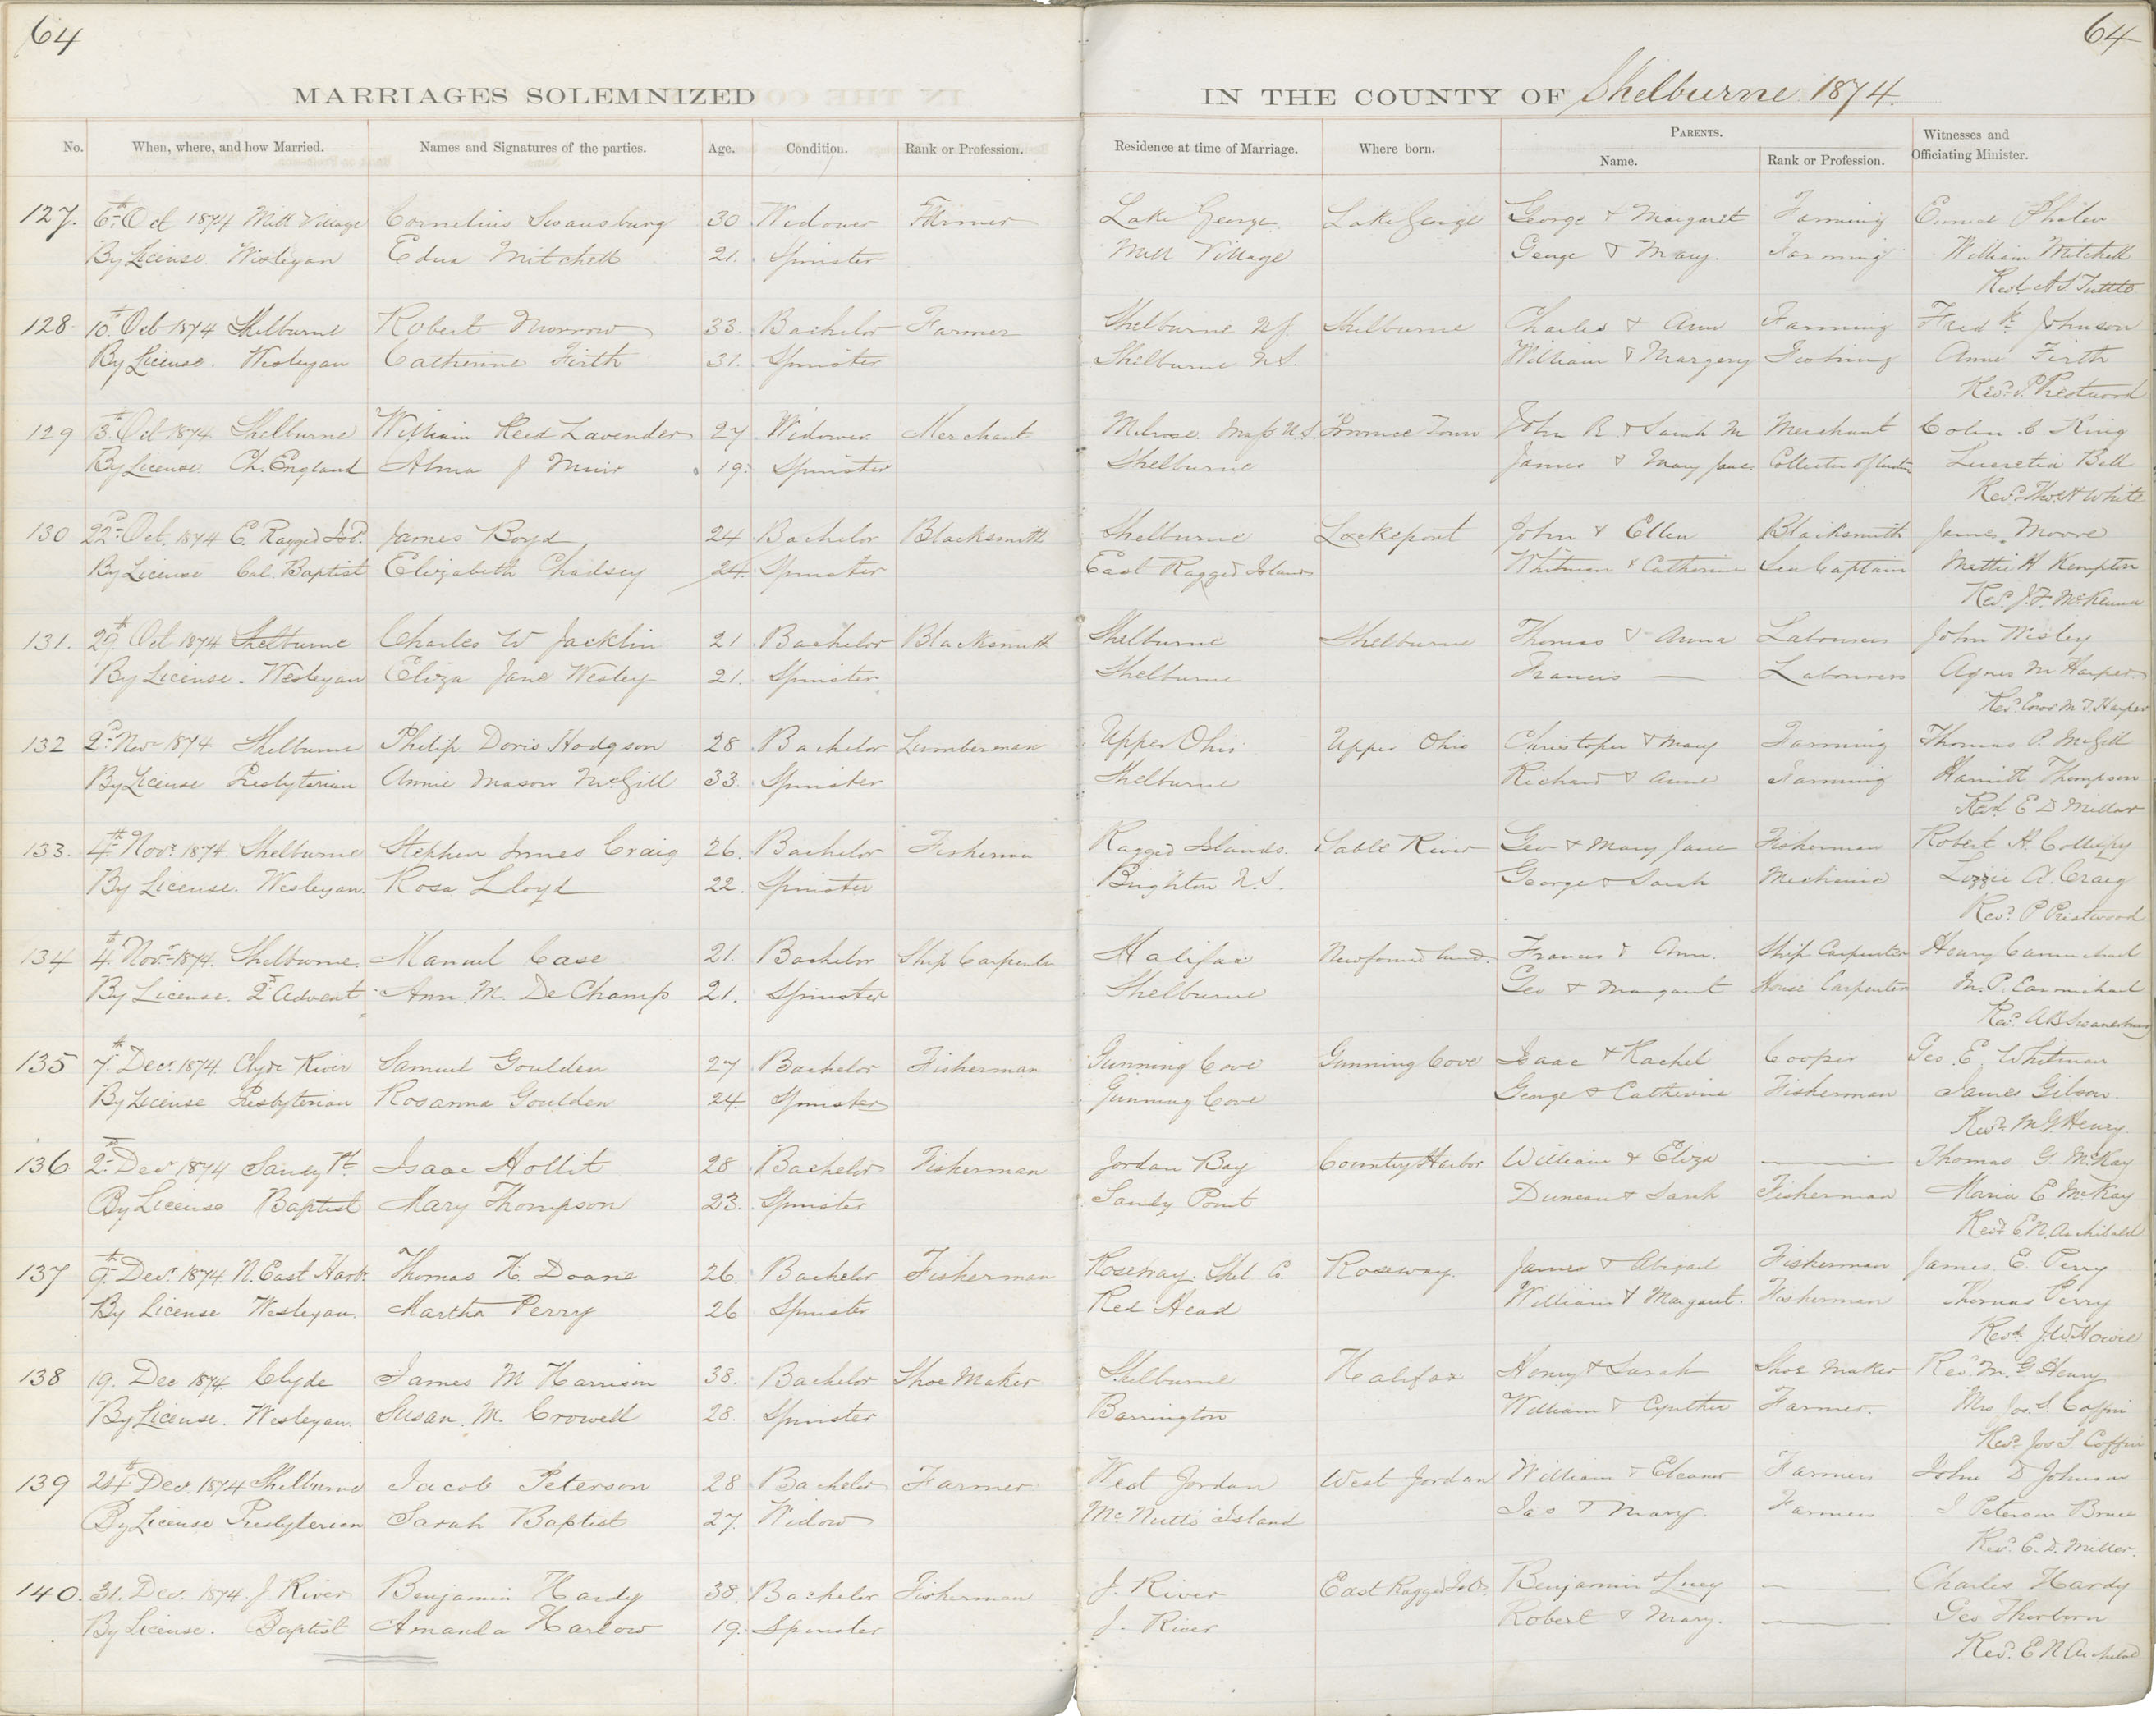 64
64
MARRIAGES SOLEMNIZED IN THE COUNTY OF Shelburne 1874.
No. When, where, and how Married. Names and Signatures of the parties. Age. Condition. Rank or Profession. Residence at time of Marriage. Where born. PARENTS. Name. Rank or Profession. Witnesses and Officiating Minister.
127. 6th Oct 1874 Mill Village Cornelius Swansburg 30 Widower Farmer Lake George Lake George George & Margaret Farming
By License Wesleyan Edna Mitchell 21. Spinster Mill Village George & Mary. Farming William Mitchell
Revd A S Tuttle
128 10th Oct 1874 Shelburne Robert Morrow 33. Bachelor Farmer Shelburne N.S. Shelburne Charles & Ann Farming Fredk Johnson
By License. Wesleyan Catherine Firth 31. Spinster Shelburne N.S. William & Margery Anne Firth
Revd P Prestwood
129 13th Oct 1874 Shelburne William Reed Lavender 27 Widower Merchant Melrose. Mass U.S. Province Town John R. & Sarah M Merchant Colin C. King
By License Ch. England Alma J Muir 19. Spinster Shelburne James & Mary Jane Collector of Customs Lucretia Bell
Revd Thos H White
130 22d Oct. 1874 E. Ragged Isd. James Boyd 24 Bachelor Blacksmith Shelburne Lockeport John & Ellen Blacksmith James Morre
By License Cal. Baptist Elizabeth Chadsey 24. Spinster East Ragged Islands Whitman & Catherine Sea Captain Mattie H Kempton
Revd J. F. McKenna
131. 29th Oct 1874 Shelburne Charles W Jacklin 21 Bachelor Blacksmith Shelburne Shelburne Thomas & Anna Labourers John Wesley
By License. Wesleyan Eliza Jane Wesley 21. Spinster Shelburne Francis — Labourers Agnes M Harper
Harper
132 2d Nov 1874 Shelburne Philip Doris Hodgson 28 Bachelor Lumberman Upper Ohio Upper Ohio Christopher & Mary Farming Thomas P. McGill
By License Presbyterian Annie Mason McGill 33 Spinster Shelburne Richard & Anne Farming Harriett Thompson
Revd E D Millar
133. 4th Novr. 1874. Shelburne Stephen Innes Craig 26. Bachelor Fisherman Ragged Islands. Sable River Geo & Mary Jane Fisherman Robert H. Collupy
By License. Wesleyan. Rosa Lloyd 22. Spinster Brighton N.S. George & Sarah Mechanic Lizzie A. Craig
Revd. P Prestwood
134 4th Novr 1874. Shelburne. Manuel Case 21. Bachelor Ship Carpenter Halifax Newfoundland. Francis & Ann. Ship Carpenter Henry Carmichael
By License. 2d Advent Ann. M. DeChamp 21. Spinster Shelburne Geo & Margaret House Carpenter M. P. Carmichael
Revd. A B Swanesburg
135 7th Decr. 1874. Clyde River Samuel Goulden 27 Bachelor Fisherman Gunning Cove Gunning Cove Isaac & Rachel Cooper Geo. E. Whitman
By License Presbyterian Rosanna Goulden 24. Spinster Gunning Cove George & Catherine Fisherman James Gibson.
Revd. M G Henry.
136 2d Decr 1874 Sandy Pt Isaac Hollit 28 Bachelor Fisherman Jordan Bay Country Harbor William & Eliza — Thomas G. McKay
By License Baptist Mary Thompson 23. Spinster Sandy Point Duncan & Sarah Fisherman Maria E McKay
Revd E N Archibald
137 9th Decr. 1874. N. East Harbr. Thomas H. Doane 26. Bachelor Fisherman Roseway. Shel Co. Roseway. James & Abigail Fisherman James. E. Perry
By License Wesleyan. Martha Perry 26 Spinster Red Head William & Margaret. Fisherman Thomas Perry
Revd. J. W. Howie
138 19. Dec 1874 Clyde James M Harrison 38. Bachelor Shoe Maker Shelburne Halifax Henry & Sarah Shoe Maker Revd. M. G Henry
By License. Wesleyan. Susan. M. Crowell 28. Spinster Barrington William & Cynthia Farmer. Mrs Jos. S. Coffin
Revd. Jos S. Coffin
139 24th Decr. 1874 Shelburne Jacob Peterson 28 Bachelor Farmer West Jordan West Jordan William & Eleanor Farmers John D Johnson
By License Presbyterian Sarah Baptist 27. Widow McNutts Island Jas & Mary. Farmers J Peterson Bruce
Revd. E. D. Miller.
140. 31. Decr. 1874. J River Benjamin Hardy 38. Bachelor Fisherman J. River East Ragged Isds. Benjamin & Lucy — Charles Hardy
By License. Baptist Amanda Harlow 19. Spinster J. River Robert & Mary. — Geo Thorborn
Revd. E N Archibald